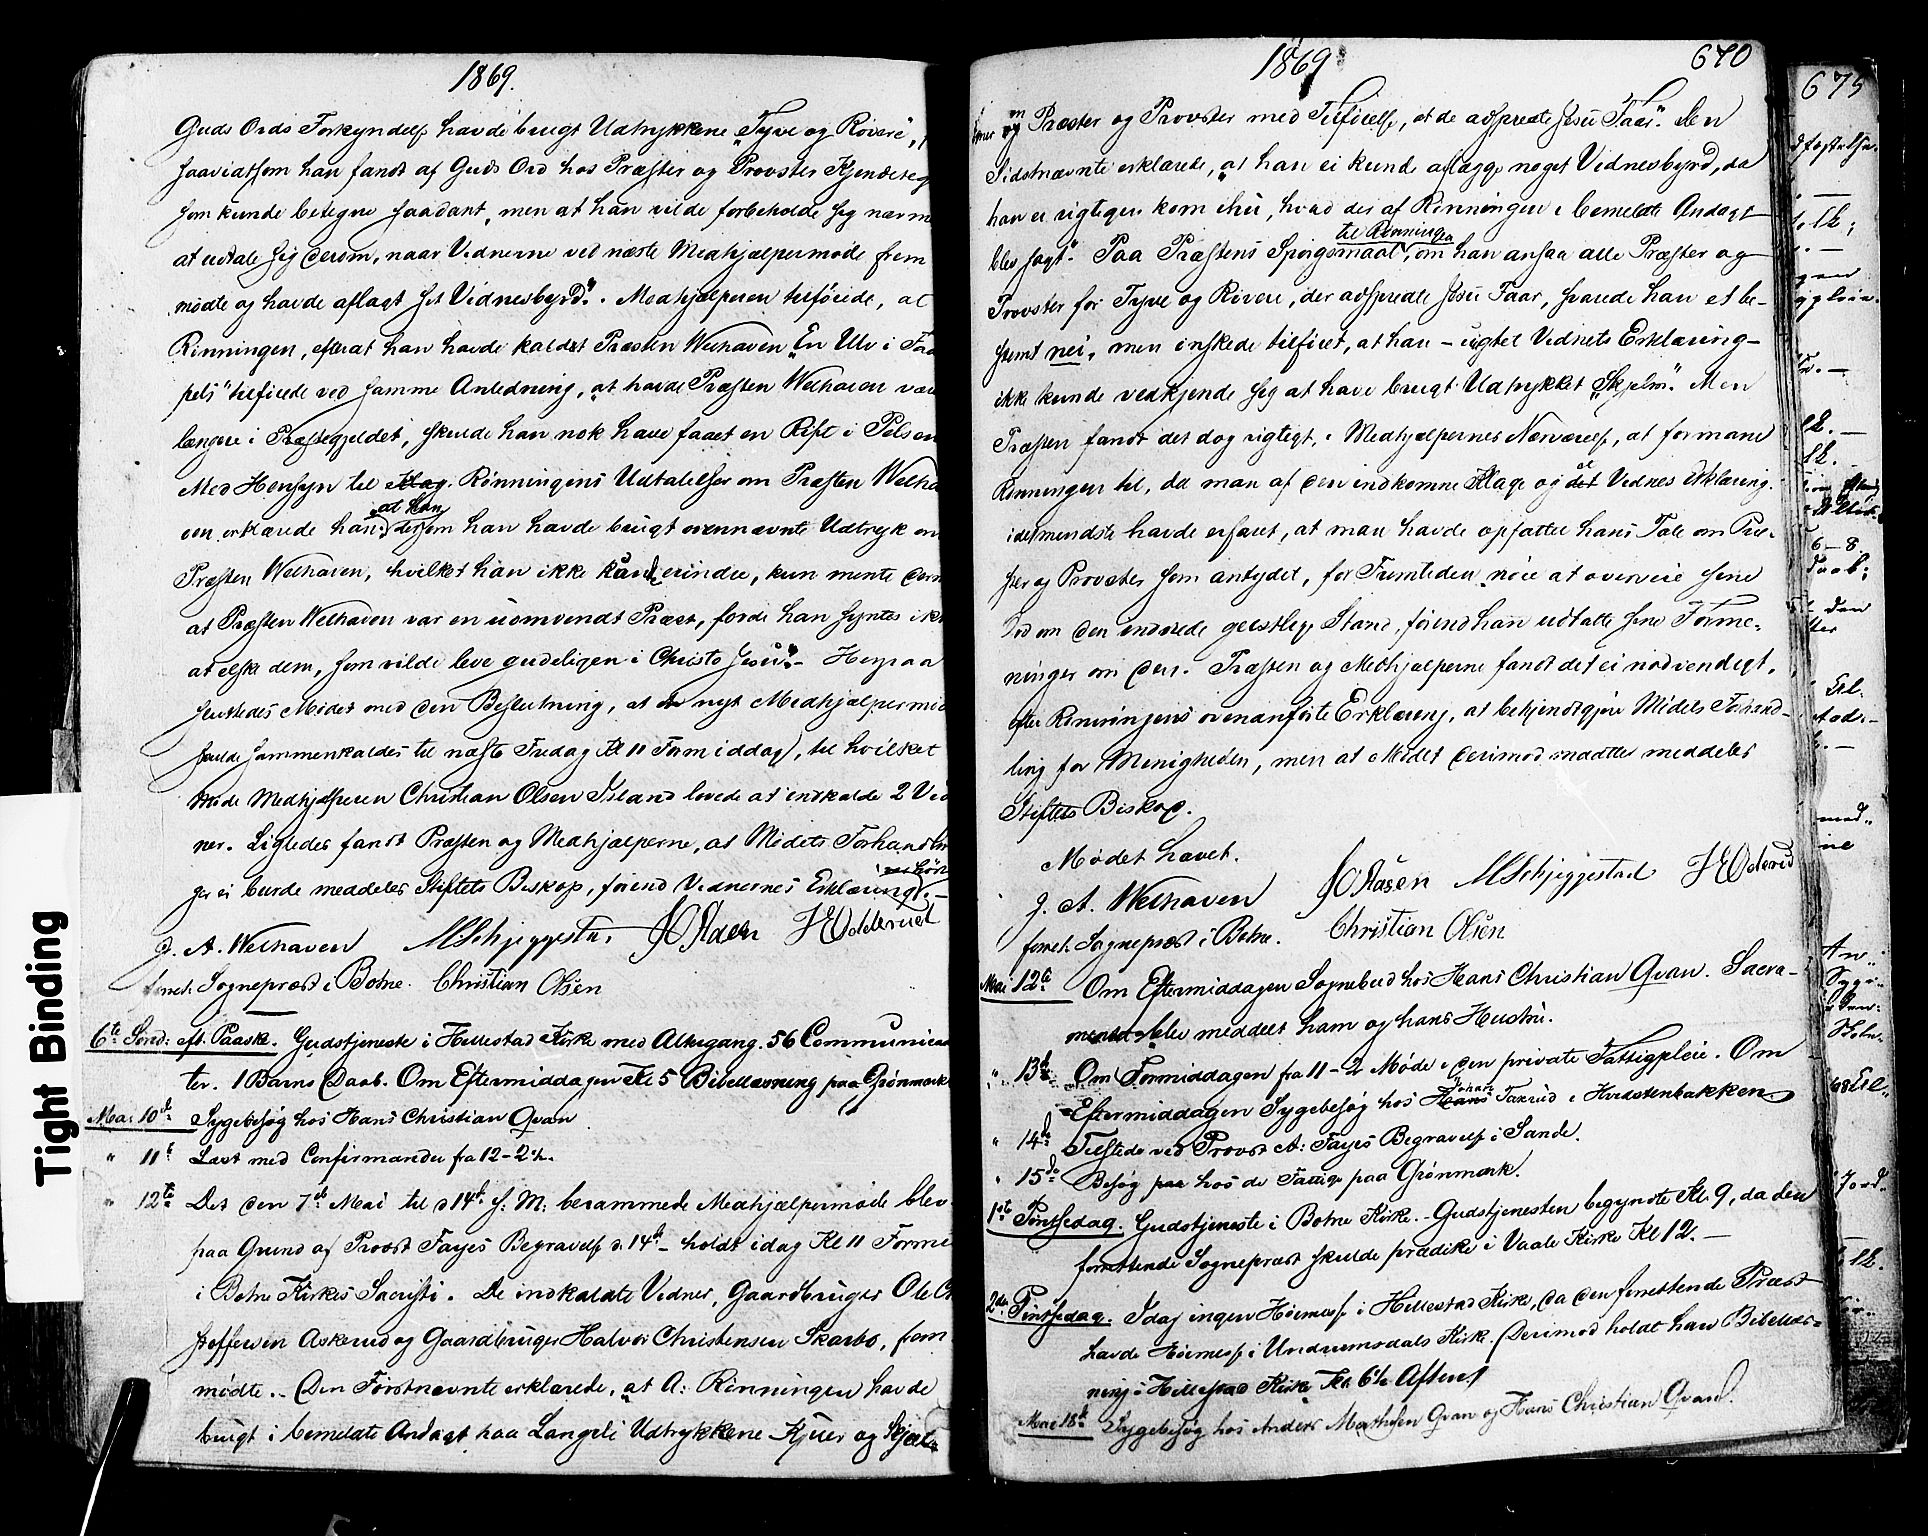 1869.
Guds Ords Forkyndelse havde brugt Udtrykkene "Tyve og Røvere",
saavidt som han fandt af Guds Ord hos Præster og Provster Kjendeteg
som kunde betegne saadant, men at han vilde forbeholde sig nærme
at udtale sig derom, naar Vidnerne ved næste Medhjælpermøde frem
mødte og havde aflagt sit Vidnesbyrd". Medhjælperen tilføiede, at
Rønningen, efterat han havde kaldet Præsten Welhaven "En Ulv i Faa
pels" tilføiede ved samme Anledning, "at havde Præsten Welhaven være
længere i Præstegjeldet, skulde han nok have faaet en Rift i Pelsen
Med Hensyn til Klag. Rønningens Udtalelser om Præsten Welha
ven erklærede han, at han, dersom han havde brugt ovennævnte Udtryk om
Præsten Welhaven, hvilket han ikke kand erindre, kun mente derm
at Præsten Welhaven var en uomvendt Præst, fordi han syntes ikke
at elske dem, som vilde leve gudeligen i Christo Jesu". - Herpaa
sluttedes Mødet med den Beslutning, at et nyt Medhjælpermød
skulde sammenkaldes til næste Fredag Kl 11 Formiddag, til hvilket
Møde Medhjælperen Christian Olsen Island lovede at indkalde 2 Vid
ner. Ligeledes fandt Præsten og Medhjælperne, at Mødets Forhandlin
ger ei burde meddeles Stiftets Biskop, førend Vidnernes Erklæring
var hørt.-
J. A. Welhaven MSchjeggestad JOAasen HEOdderud
forret. Sognepræst i Botne. Christian Olsen
6te Sönd: eft. Paaske. Gudstjeneste i Hillestad Kirke med Altergang. 56 Communican
ter. 1 Barns Daab. Om Eftermiddagen Kl 5 Bibellæsning paa Grönmark
Mai 10de Sygebesøg hos Hans Christian Qvan
" 11te Læst med Confirmander fra 12-2½.
" 12te Det den 7de Mai til d 14de s: M: berammede Medhjælpermøde blev
paa Grund af Provst Fayes Begravelse d. 14de - holdt idag Kl 11 Formd
i Botne Kirkes Sacristi. De indkaldte Vidner, Gaardbruger Ole Ch
stoffersen Askerud og Gaardbruger Halvor Christensen Skarbo, frem
mødte.- Den Førstnævnte erklærede, "at A: Rønningen havde
brugt i bemeldte Andagt paa Langeli Udtrykkene Tyver og Skjæl-
1869
670
mer om Præster og Provster med Tilføielse, at de adspredte Jesu Faar". Den
Sidstnævnte erklærede, "at han ei kunde aflægge noget Vidnesbyrd, da
han ei rigtigen kom ihu, hvad der af Rønningen i bemeldte Andagt
blev sagt". Paa Præstens Spørgsmaal til Rønningen, om han ansaa alle Præster og
Provster for Tyve og Røvere, der adspredte Jesu Faar, svarede han et be-
stemt nei, men ønskede tilføiet, at han - uagtet Vidnets Erklæring -
ikke kunde vedkjende sig at have brugt Udtrykket "Skjelm". Men
Præsten fandt det dog rigtigt, i Medhjælpernes Nærværelse, at formane
Rønningen til, da man af den indkomne Klage og det et Vidnes Erklæring
idetmindste havde erfaret, at man havde opfattet hans Tale om Præ-
ster og Provster som antydet, for Fremtiden nøie at overveie sine
Ord om den indviede geistlige Stand, førend han udtalte sine Forme-
ninger om den. Præsten og Medhjælperne fandt det ei nødvendigt,
efter Rønningens ovenanførte Erklæring, at bekjendtgjøre Mødets Forhand-
ling for Menigheden, men at Mødet derimod maatte meddeles
Stiftets Biskop.
Mødet hævet.
J. A. Welhaven JOAasen MSchjeggestad HEOdderud
forret. Sognepræst i Botne. Christian Olsen
Mai 12te Om Eftermiddagen Sognebud hos Hans Christian Qvan. Sacra-
mentet blev meddelt ham og hans Hustru.
" 13de Om Formiddagen fra 11-2 Møde i den private Fattigpleie. Om
Eftermiddagen Sygebesøg hos Hans Johan Taxrud i Hvidstenbakken
" 14de Tilstede ved Provst A: Fayes Begravelse i Sande.
" 15de Besøg paa hos de Fattige paa Grønmark.
1ste Pintsedag. Gudstjeneste i Botne Kirke.- Gudstjenesten begyndte Kl. 9, da den
forrettende Sognepræst skulde prædike i Vaale Kirke Kl 12.-
2den Pintsedag. Idag ingen Høimesse i Hillestad Kirke, da den forrettende Præst
havde Høimesse i Undrumsdals Kirke. Derimod holdt han Bibellæs-
ning i Hillestad Kirke Kl. 6½ Aften.
Mai 18de Sygebesøg hos Anders Mathisen Qvan og Hans Christian Qvan.
675
6-8.
Daab;
den
Til-
Tight Binding